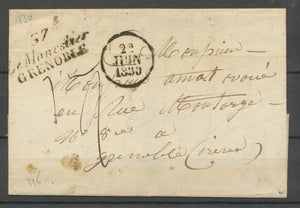 1830
37
Le Monestier
GRENOBLE
22
JUIN
1830
Monsieur
Monsieur amat avoué
en Rue Montorge
N° 8 à
Grenoble (isère)
336